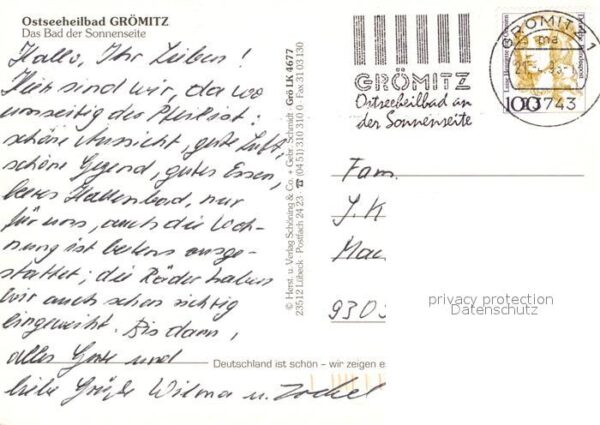 Ostseeheilbad GRÖMITZ
Das Bad der Sonnenseite
Hallo, Ihr Lieben!
Hier sind wir, da wo
umseitig des Pferd ist:
schöne Aussicht, gute Luft,
schöne Gegend, gutes Essen,
leeres Hallenbad, nur
für uns, auch die Woh-
nung ist bestens ausge-
stattet; die Räder haben
wir auch schon richtig
eingeweiht. Bis dann,
alles Gute und
liebe Grüße Wilma u.
© Herst. u. Verlag Schöning & Co. + Gebr. Schmidt Grö LK 4677
23512 Lübeck · Postfach 24 23 ☎ (04 51) 310 310 0 · Fax 31 03 130
GRÖMITZ
Ostseeheilbad an
der Sonnenseite
GRÖMITZ 1
ma
23743
100
Deutsche Bundespost
Fam.
J. K
Mac
930
privacy protection
Datenschutz
Deutschland ist schön – wir zeigen e